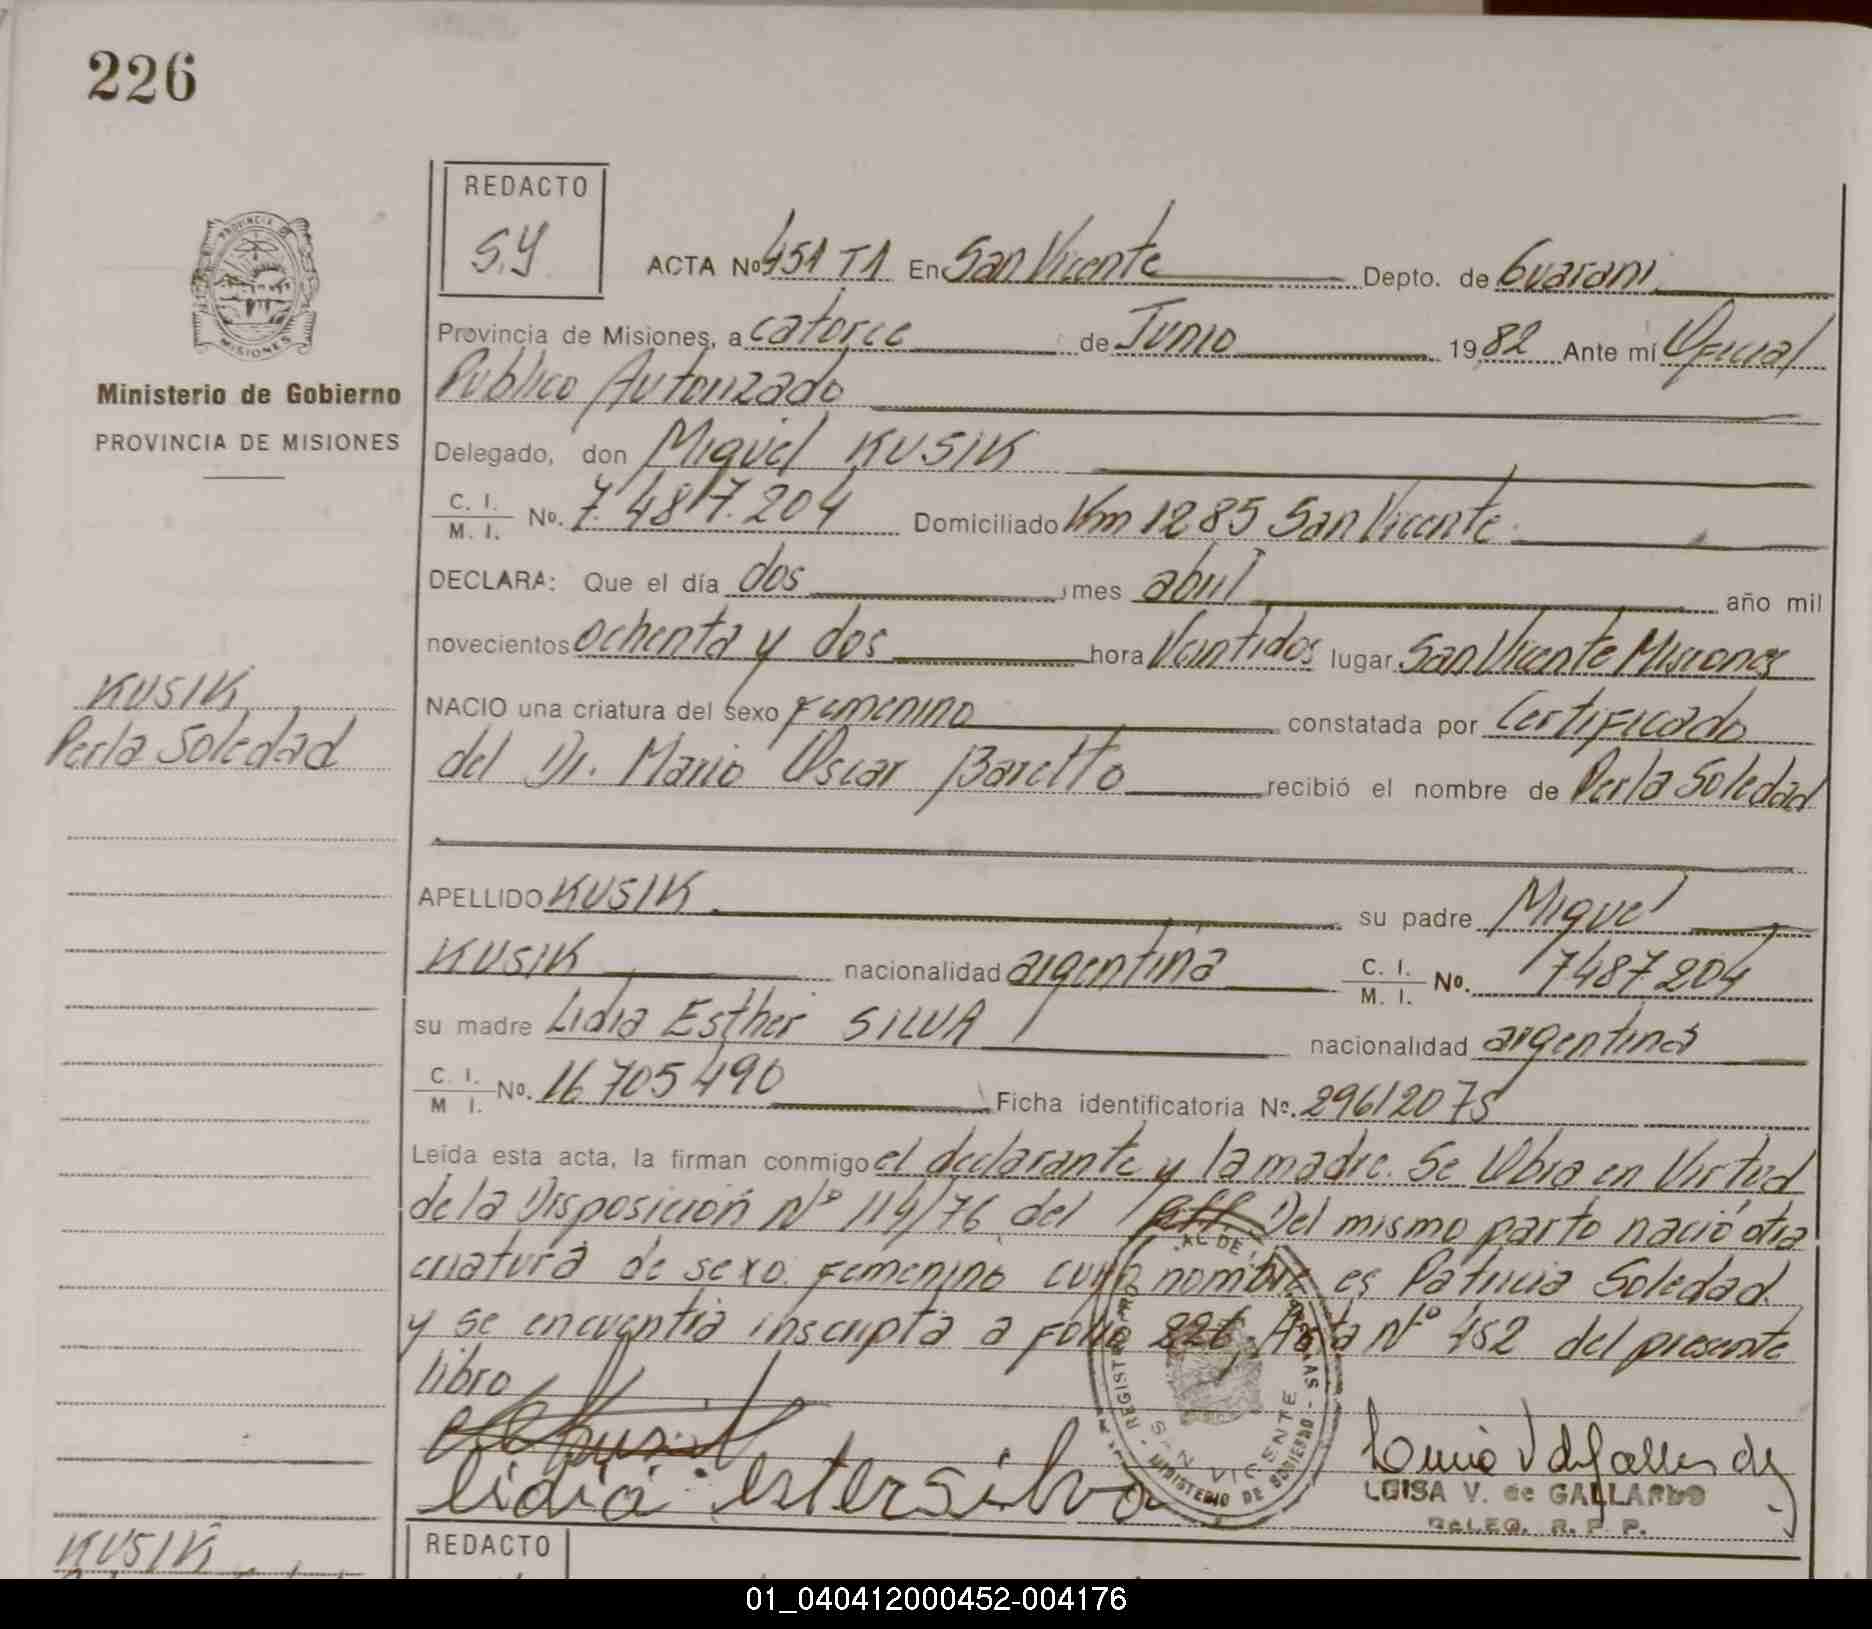 226
REDACTO
S.Y.
ACTA No 451 T1 En San Vicente Depto. de Guaraní
PROVINCIA DE
MISIONES
Provincia de Misiones, a catorce de Junio 1982 Ante mí Oficial
Ministerio de Gobierno
Publico Autorizado
PROVINCIA DE MISIONES
Delegado, don Miguel KUSIK
C. I.
M. I. No. 7.487.204 Domiciliado Km 1285 San Vicente
DECLARA: Que el día dos mes abril año mil
novecientos ochenta y dos hora Veintidos lugar San Vicente Misiones
KUSIK
Perla Soledad
NACIO una criatura del sexo Femenino constatada por Certificado
del Dr. Mario Oscar Baretto recibió el nombre de Perla Soledad
APELLIDO KUSIK su padre Miguel
KUSIK nacionalidad argentina C. I.
M. I. No. 7487204
su madre Lidia Esther SILVA nacionalidad argentina
C. I.
M I. No. 16705490 Ficha identificatoria No. 29612075
Leída esta acta, la firman conmigo el declarante y la madre. Se Obra en Virtud
de la Disposición Nº 114/76 del Del mismo parto nació otra
criatura de sexo Femenino cuyo nombre es Patricia Soledad
y se encuentra inscripta a folio 226, Acta Nº 452 del presente
libro
lidia ester silva
SAN VICENTE
MINISTERIO DE GOBIERNO
LUISA V. de GALLARDO
DELEG. R. P. P.
KUSIK
REDACTO
01_040412000452-004176